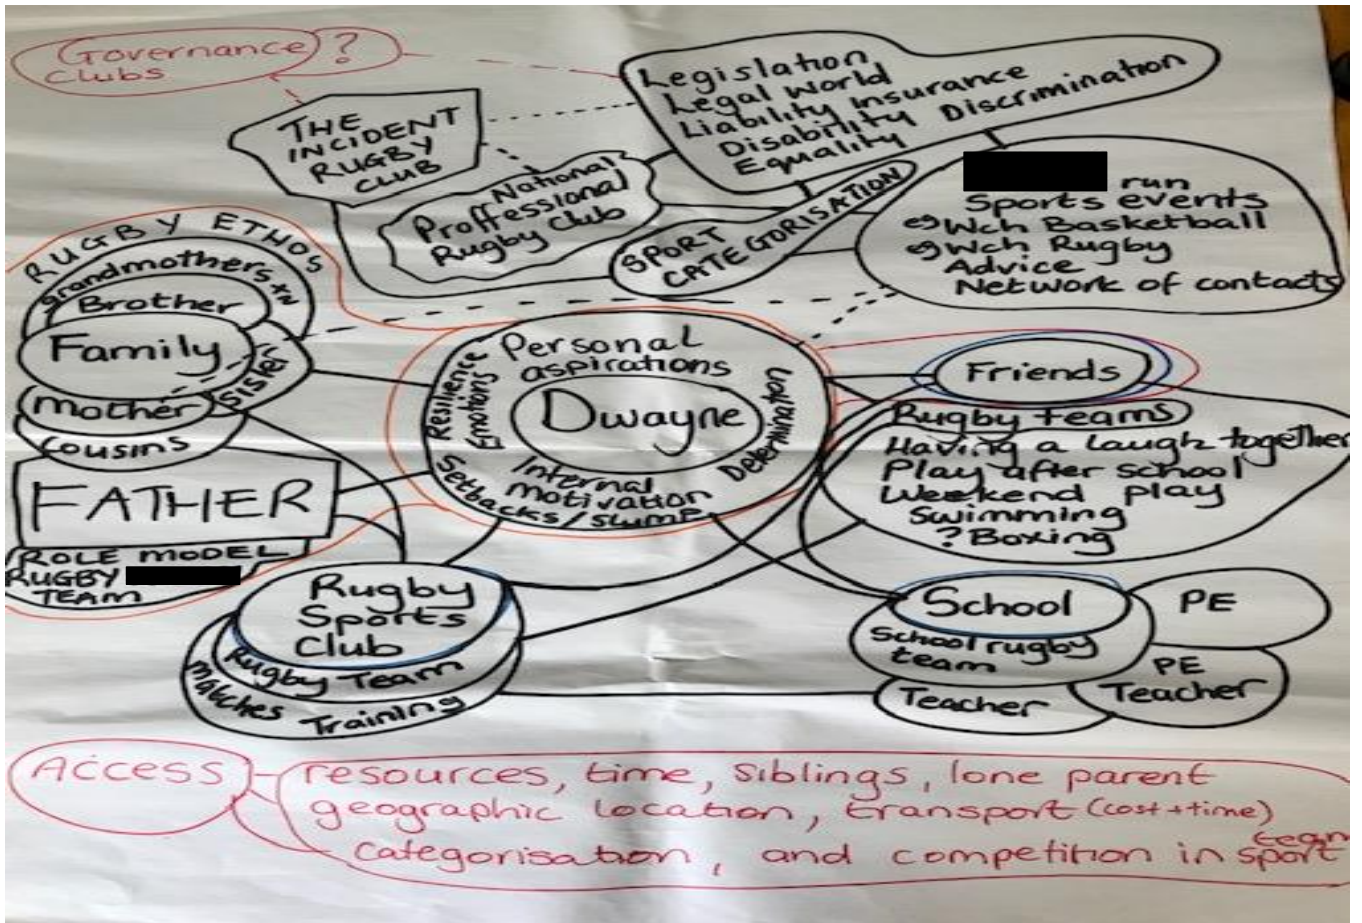 Governance ?
clubs
THE
INCIDENT
RUGBY
CLUB
Legislation
Legal World
Liability Insurance
Disability Discrimination
Equality
National
Proffessional
Rugby Club
SPORT
CATEGORISATION
run
Sports events
eg Wch Basketball
eg Wch Rugby
Advice
Network of contacts
RUGBY ETHOS
Grandmothers
Brother
Family
Sister
Mother
Cousins
FATHER
ROLE MODEL
RUGBY
TEAM
Personal
aspirations
Dwayne
Resilience
Emotions
Internal
motivation
Setbacks/slump
Determination
Friends
Rugby teams
Having a laugh together
Play after school
Weekend play
Swimming
? Boxing
Rugby
Sports
Club
Rugby Team
Matches Training
School
School rugby
team
Teacher
PE
PE
Teacher
Access
resources, time, siblings, lone parent
geographic location, transport (cost+time)
categorisation, and competition in team
sport